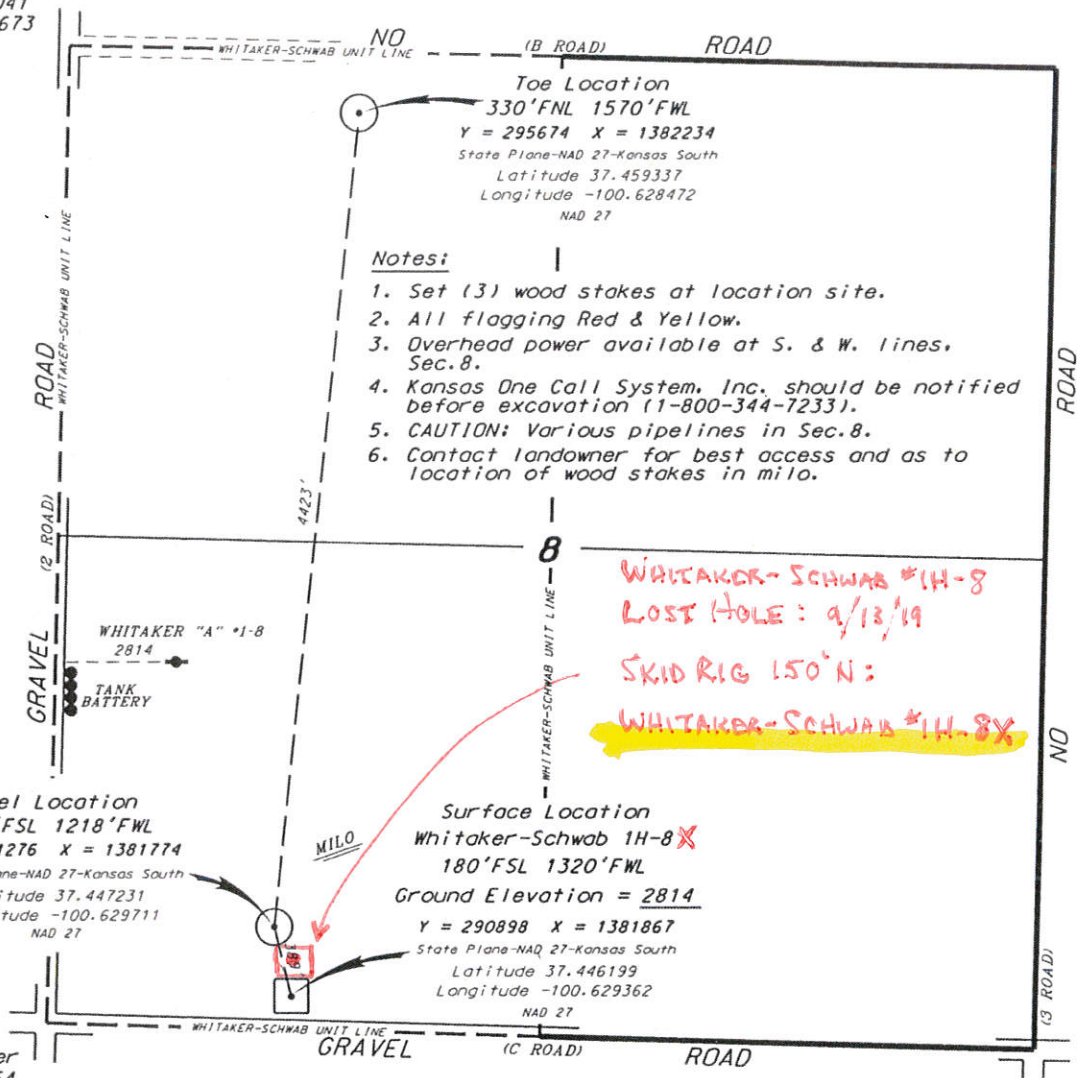 673
NO (B ROAD) ROAD
WHITAKER-SCHWAB UNIT LINE
Toe Location
330'FNL 1570'FWL
Y = 295674 X = 1382234
State Plane-NAD 27-Kansas South
Latitude 37.459337
Longitude -100.628472
NAD 27
WHITAKER-SCHWAB UNIT LINE
Notes:
1. Set (3) wood stakes at location site.
2. All flagging Red & Yellow.
3. Overhead power available at S. & W. lines.
Sec.8.
4. Kansas One Call System. Inc. should be notified
before excavation (1-800-344-7233).
5. CAUTION: Various pipelines in Sec.8.
6. Contact landowner for best access and as to
location of wood stakes in milo.
ROAD
ROAD
4423'
(2 ROAD)
8
WHITAKER-SCHWAB #1H-8
LOST HOLE: 9/13/19
SKID RIG 150'N:
WHITAKER-SCHWAB #1H-8X
WHITAKER-SCHWAB UNIT LINE
WHITAKER "A" #1-8
2814
TANK
BATTERY
GRAVEL
NO
el Location
FSL 1218'FWL
1276 X = 1381774
ne-NAD 27-Kansas South
tude 37.447231
tude -100.629711
NAD 27
MILO
Surface Location
Whitaker-Schwab 1H-8X
180'FSL 1320'FWL
Ground Elevation = 2814
Y = 290898 X = 1381867
State Plane-NAD 27-Kansas South
Latitude 37.446199
Longitude -100.629362
NAD 27
(3 ROAD)
WHITAKER-SCHWAB UNIT LINE
GRAVEL (C ROAD) ROAD
er